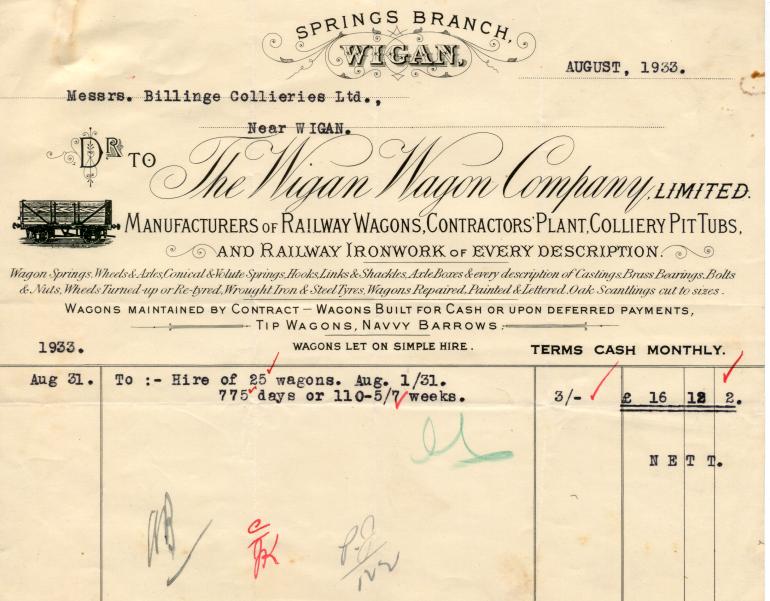 SPRINGS BRANCH,
WIGAN,
AUGUST, 1933.
Messrs. Billinge Collieries Ltd.,
Near WIGAN.
DR TO The Wigan Wagon Company, LIMITED.
MANUFACTURERS OF RAILWAY WAGONS, CONTRACTORS' PLANT, COLLIERY PIT TUBS,
AND RAILWAY IRONWORK OF EVERY DESCRIPTION.
Wagon Springs, Wheels & Axles, Conical & Volute Springs, Hooks, Links & Shackles, Axle Boxes & every description of Castings, Brass Bearings, Bolts
& Nuts, Wheels Turned-up or Re-tyred, Wrought Iron & Steel Tyres, Wagons Repaired, Painted & Lettered. Oak Scantlings cut to sizes.
WAGONS MAINTAINED BY CONTRACT — WAGONS BUILT FOR CASH OR UPON DEFERRED PAYMENTS,
TIP WAGONS, NAVVY BARROWS.
1933. WAGONS LET ON SIMPLE HIRE. TERMS CASH MONTHLY.
Aug 31. To :- Hire of 25 wagons. Aug. 1/31.
775 days or 110-5/7 weeks. 3/- £ 16 12 2.
NETT.